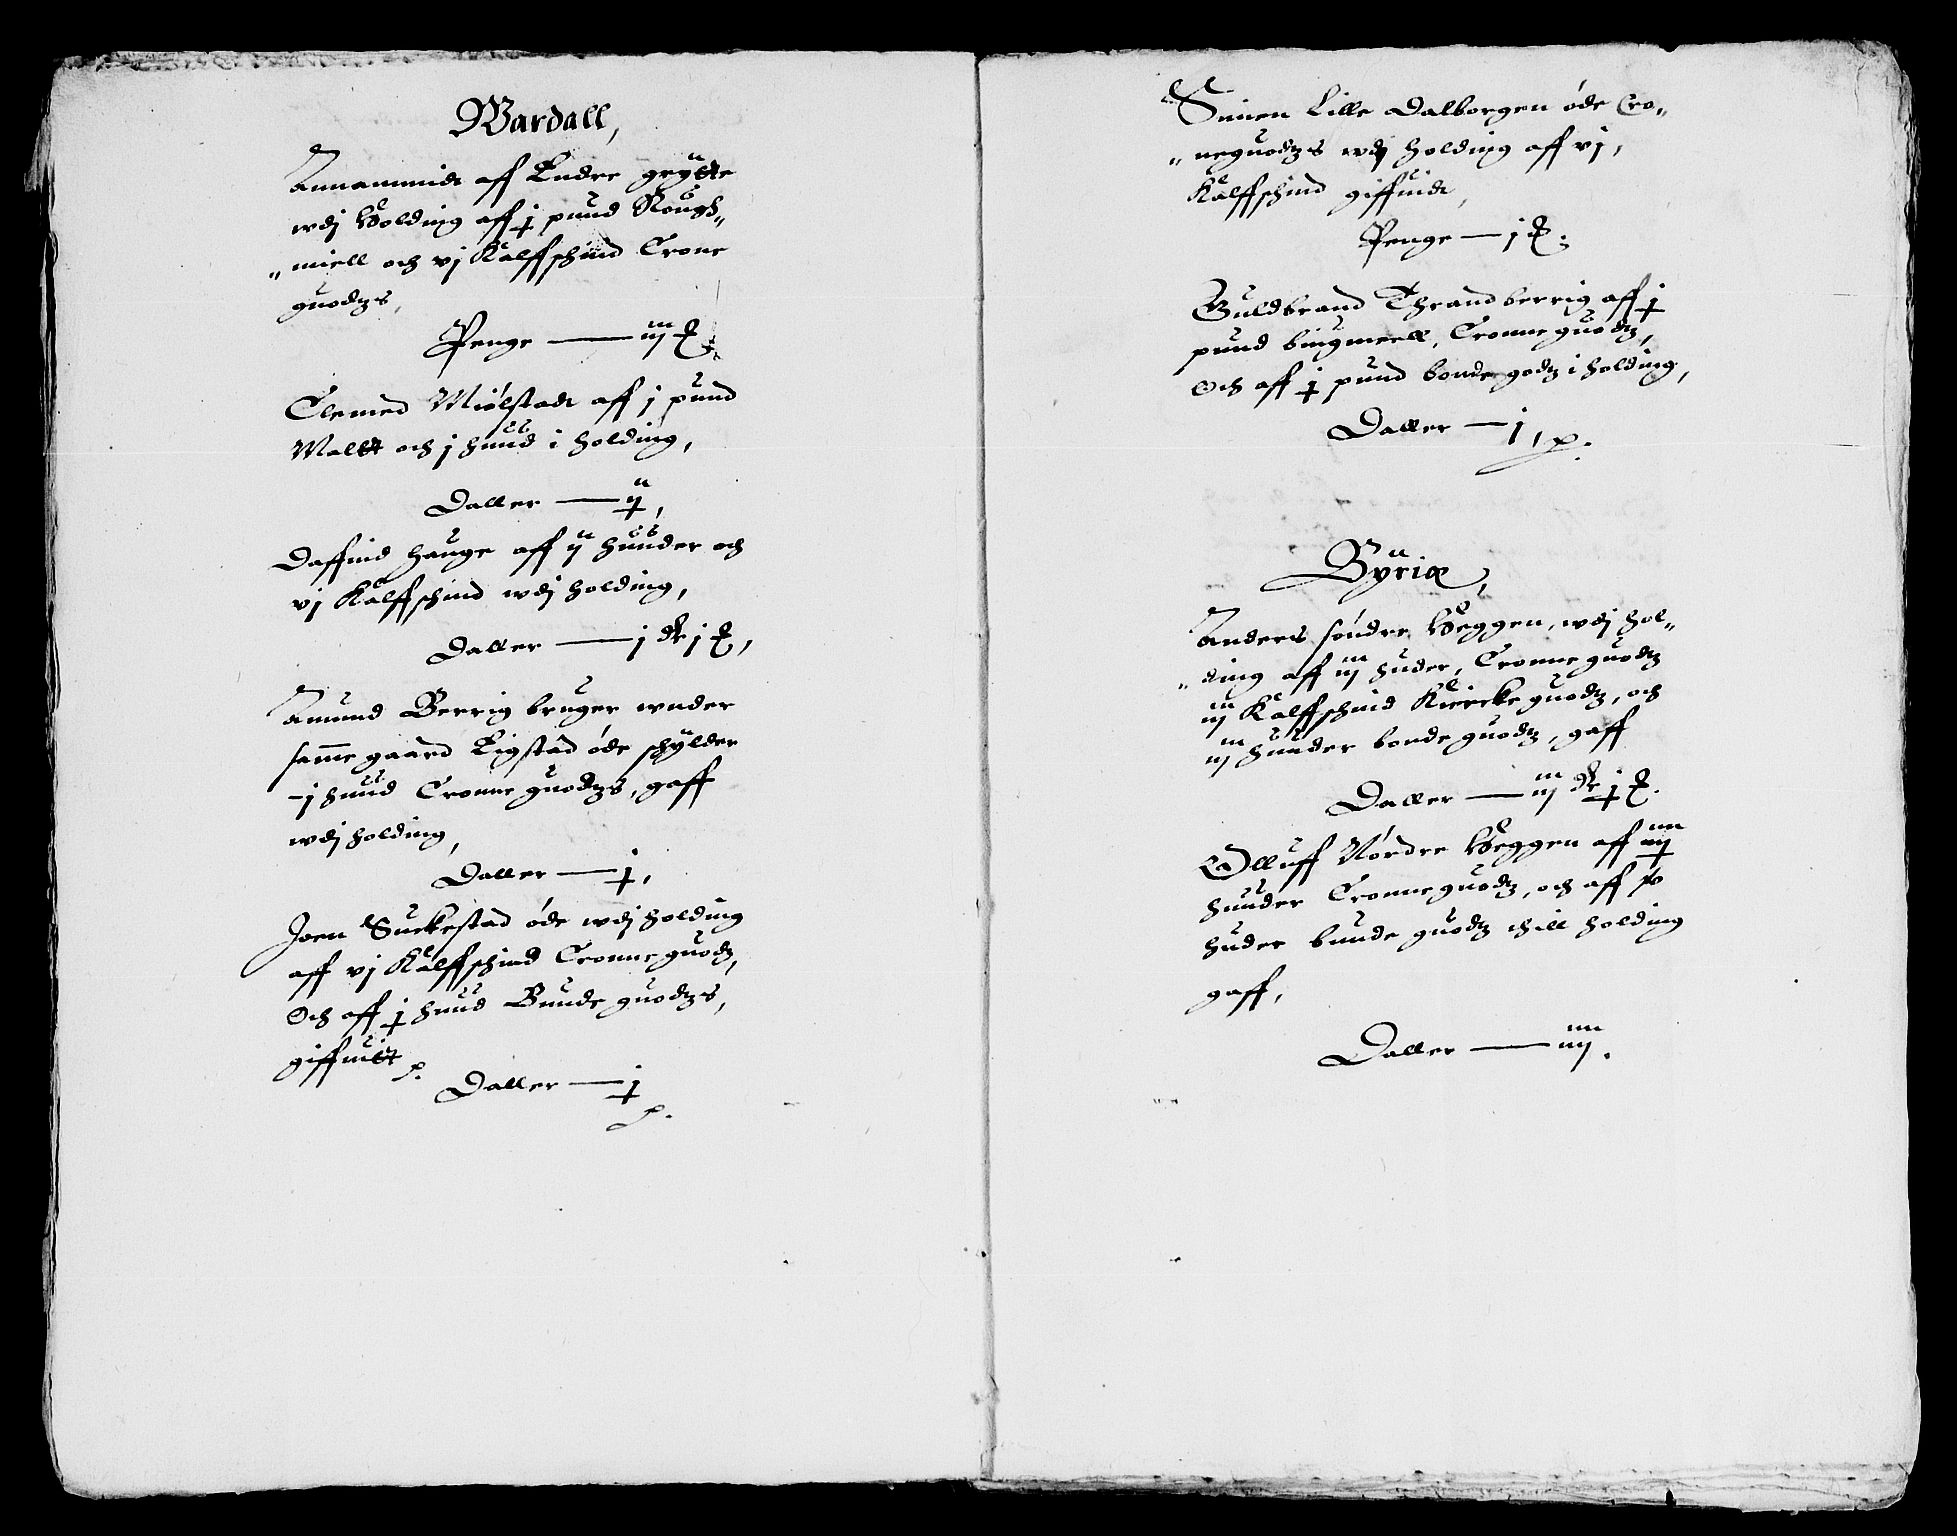 Wardall,
Annammidt aff Endre grytte
wdj Holding aff j pund Rough-
miell och vj Kalffschind Crone
guodtzs,
Penge — iij
Clemed Miölstadt aff j pund
Maltt och j huud i holding,
Daller — ij,
Daffind Hauge aff ij huuder och
vj Kalffschind wdj holding,
Daller — j dr j
Amund Berrig bruger wnder
samme gaard Ligstad øde schylder
j huud Cronne guodtzs, gaff
wdj holding,
Daller — j,
Joen Suckestad øde wdj holding
aff vj Kalffschind Cronne guodtz,
Och aff j huud Bunde guodtzs,
giffuitt
Daller — j
Simen Lille Dalborgen øde Cro-
neguodtzs wdj holding aff vj,
Kalffschind giffuidt,
Penge — j
Guldbrand Thrandberrig aff j
pund bingmeell, Cronne guodtz,
Och aff j pund bonde godtz i holding,
Daller — j,
Byrie,
Anders søndre Veggen, wdj hol-
ding aff iij huder, Cronne guodtz
iij Kalffschind Kiercke guodtz, och
iij huuder bonde guodtz, gaff
Daller — iij dr j
Olluff Nørdre Veggen aff iiij
huuder Cronne guodtz, och aff
huder bunde guodtz thill holding
gaff,
Daller — iiij.